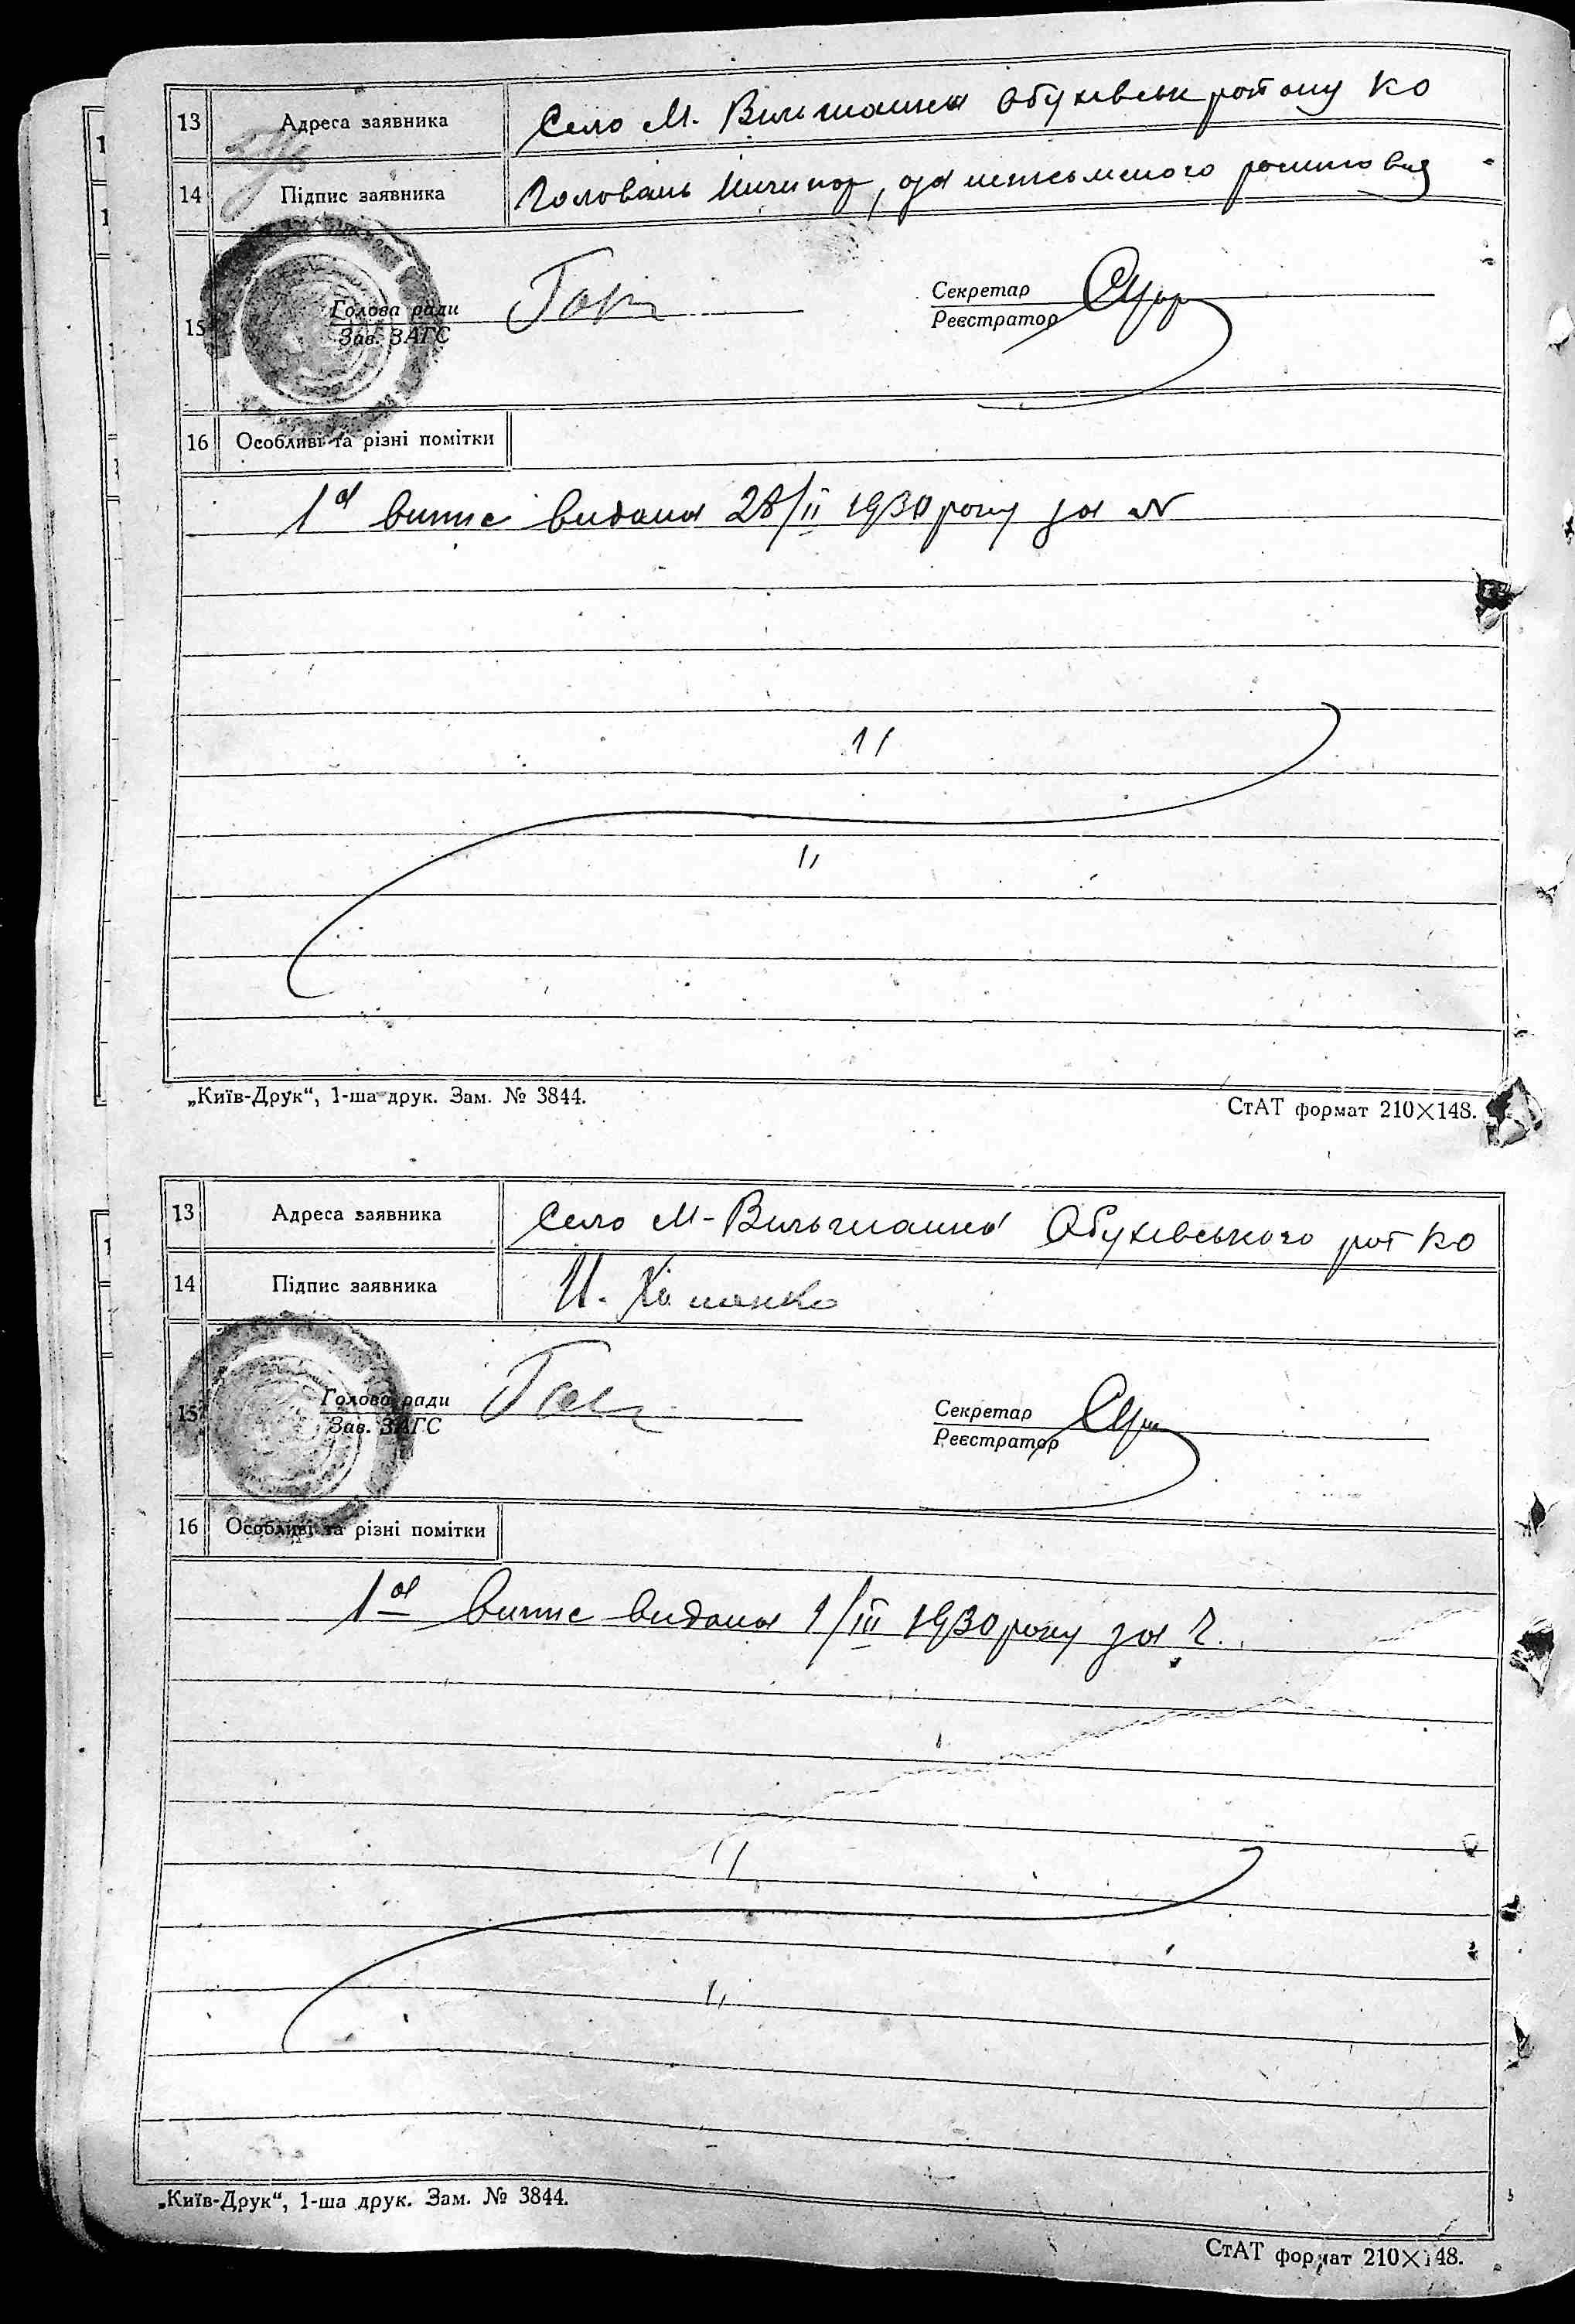 13 Адреса заявника Село М. Вільшанка Обухівськ району КО
14 Підпис заявника Головань Ничипор, за неписьменого росписався
15 Голова ради Секретар
Зав. ЗАГС Реєстратор
16 Особливі та різні помітки
1а випис видана 28/II 1930 року за №
„Київ-Друк“, 1-ша друк. Зам. № 3844.
СтАТ формат 210×148.
13 Адреса заявника Село М-Вільшанка Обухівського рай КО
14 Підпис заявника И. Хоменко
15 Голова ради Секретар
Зав. ЗАГС Реєстратор
16 Особливі та різні помітки
1а випис видана 1/III 1930 року за
„Київ-Друк“, 1-ша друк. Зам. № 3844.
СтАТ формат 210×148.